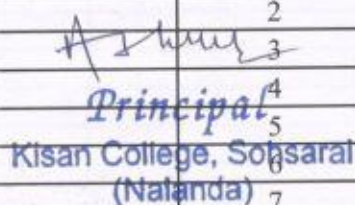 2
3
Principal 4
5
Kisan College, Sohsarai 6
(Nalanda) 7